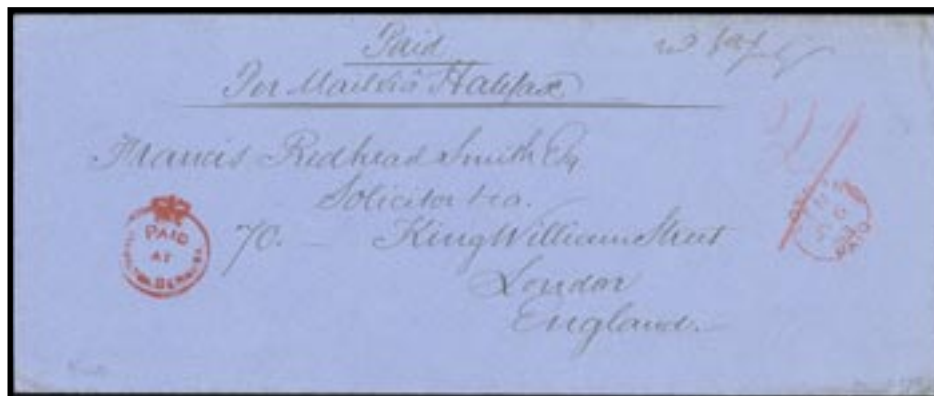 Paid
Per Mail via Halifax
Francis Redhead Smith Esq
Solicitor &c a.
70. — King William Street
London
England.—
PAID
AT
HAMILTON BERMUDA
PAID